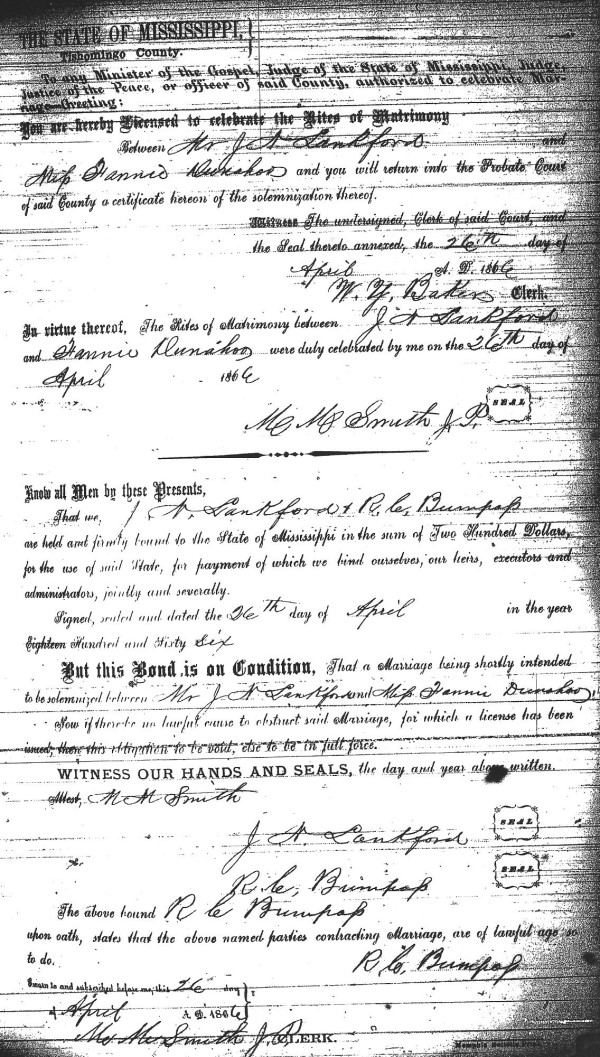 THE STATE OF MISSISSIPPI,
Tishomingo County.
To any Minister of the Gospel, Judge of the State of Mississippi, Judge,
Justice of the Peace, or officer of said County, authorized to celebrate Mar-
riage—Greeting:
You are hereby Licensed to celebrate the Rites of Matrimony
Between Mr J N Lankford and
Miss Fannie Dunahoo and you will return into the Probate Court
of said County a certificate hereon of the solemnization thereof.
Witness The undersigned, Clerk of said Court, and
the Seal thereto annexed, the 26th day of
April A. D. 1866
W. Y. Baker Clerk.
In virtue thereof, The Rites of Matrimony between J N Lankford
and Fannie Dunahoo were duly celebrated by me on the 26th day of
April 1866
M M Smith J. P. SEAL
Know all Men by these Presents,
That we, J. N. Lankford & R. C. Bumpass
are held and firmly bound to the State of Mississippi in the sum of Two Hundred Dollars,
for the use of said State, for payment of which we bind ourselves, our heirs, executors and
administrators, jointly and severally.
Signed, sealed and dated the 26th day of April in the year
Eighteen Hundred and Sixty Six
But this Bond is on Condition, That a Marriage being shortly intended
to be solemnized between Mr J N Lankford and Miss Fannie Dunahoo,
Now if there be no lawful cause to obstruct said Marriage, for which a license has been
issued, then this obligation to be void, else to be in full force.
WITNESS OUR HANDS AND SEALS, the day and year above written.
Attest, M M Smith
J N Lankford SEAL
R. C. Bumpass SEAL
The above bound R C Bumpass
upon oath, states that the above named parties contracting Marriage, are of lawful age so
to do. R. C. Bumpass
Sworn to and subscribed before me, this 26 day
of April A. D. 1866
M M Smith J. P. CLERK.